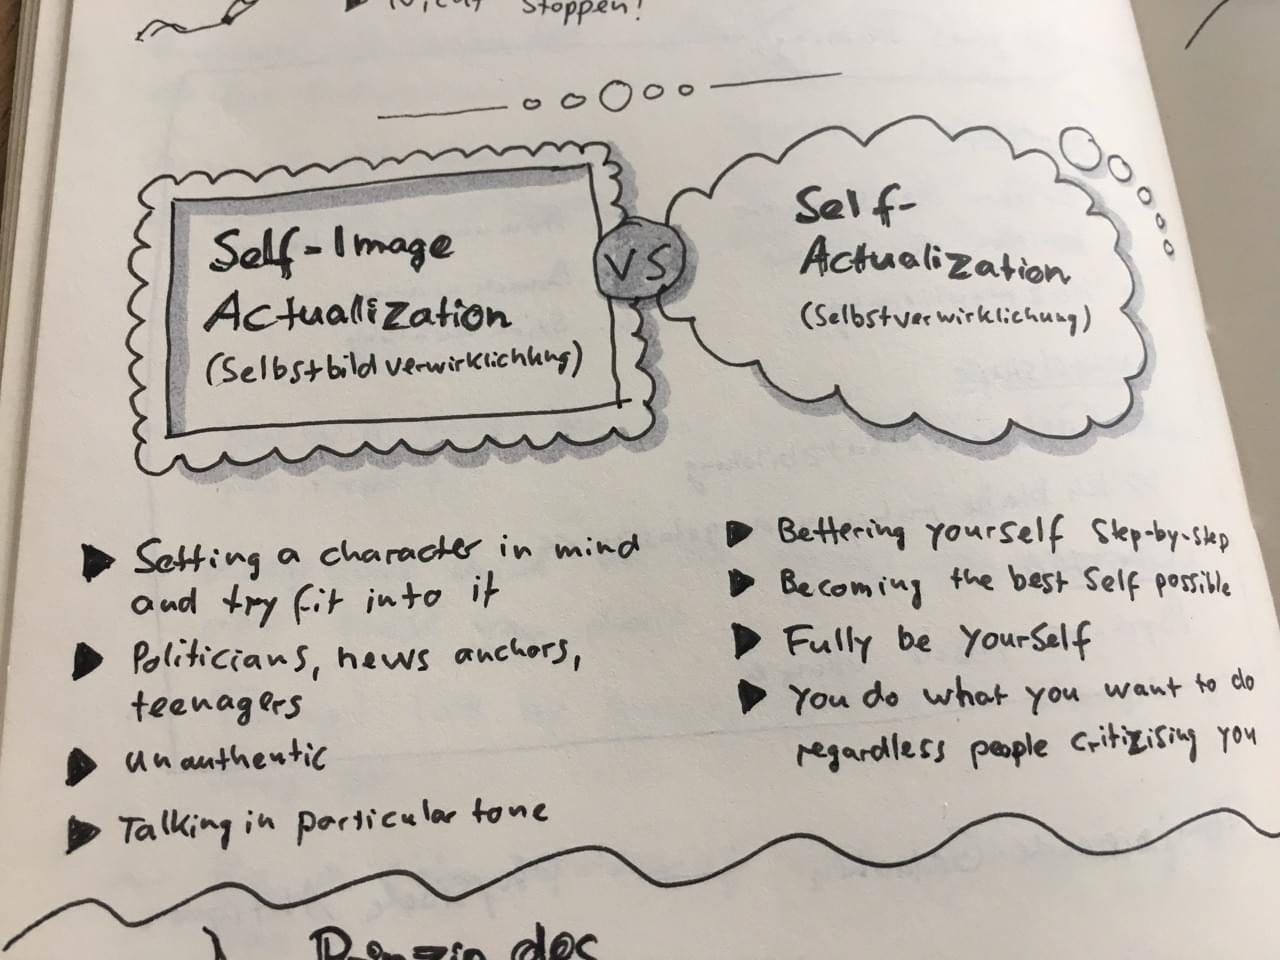 Nicht stoppen!
Self-Image
Actualization
(Selbstbildverwirklichung)
VS
Self-
Actualization
(Selbstverwirklichung)
Setting a character in mind
and try fit into it
Politicians, news anchors,
teenagers
Unauthentic
Talking in particular tone
Bettering yourself Step-by-step
Becoming the best Self possible
Fully be yourself
You do what you want to do
regardless people critizising you
Prinzip des